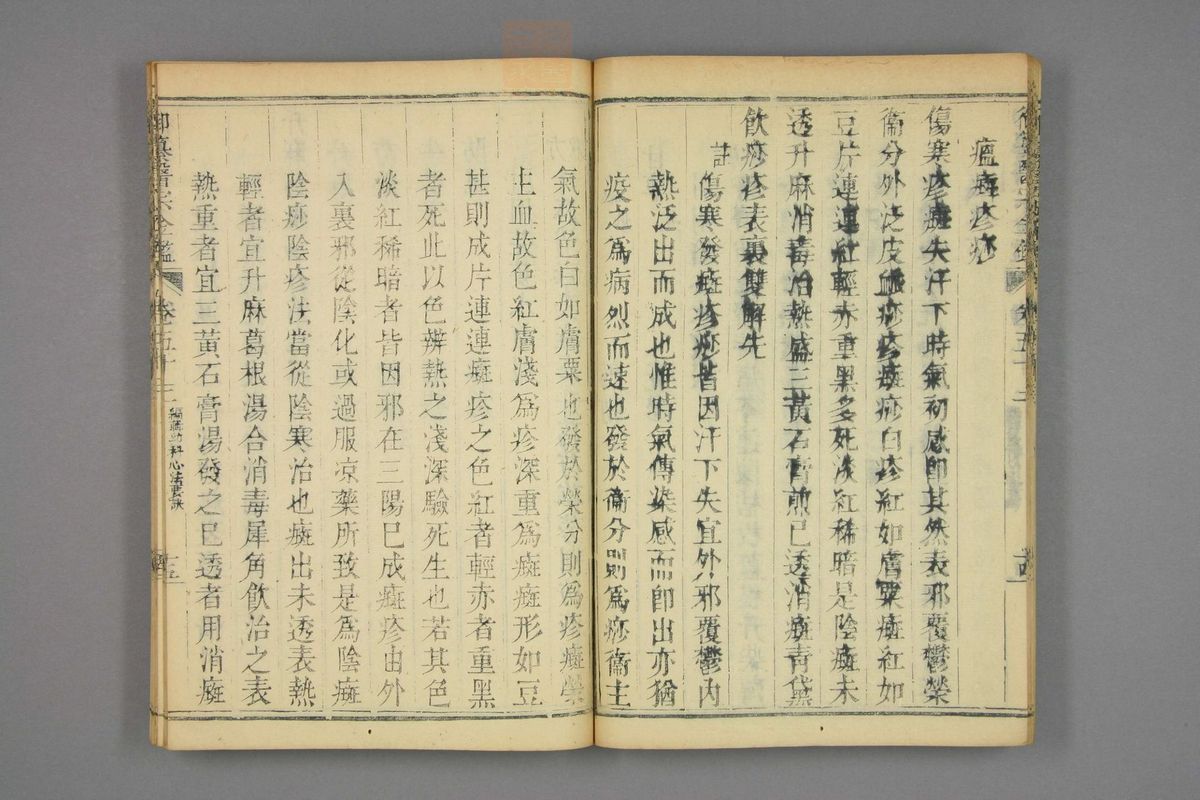 瘟癍疹痧
傷寒疹癍失汗下時氣初感即其然表邪覆鬱榮
衞分外泛皮血痧疹癍痧白疹紅如膚粟癍紅如
豆片連連紅輕赤重黑多死淡紅稀暗是陰癍未
透升麻消毒治熱盛三黃石膏煎已透消癍青黛
飲痧疹表裏雙解先
註
傷寒發癍疹痧皆因汗下失宜外邪覆鬱內
熱泛出而成也惟時氣傳染感而即出亦猶
疫之爲病烈而速也發於衞分則爲痧衞主
氣故色白如膚粟也發於榮分則爲疹癍榮
主血故色紅膚淺爲疹深重爲癍癍形如豆
甚則成片連連癍疹之色紅者輕赤者重黑
者死此以色辨熱之淺深驗死生也若其色
淡紅稀暗者皆因邪在三陽已成癍疹由外
入裏邪從陰化或過服凉藥所致是爲陰癍
陰痧陰疹法當從陰寒治也癍出未透表熱
輕者宜升麻葛根湯合消毒犀角飲治之表
熱重者宜三黃石膏湯發之已透者用消癍
御纂醫宗金鑑 卷五十三 編輯幼科心法要訣 十五